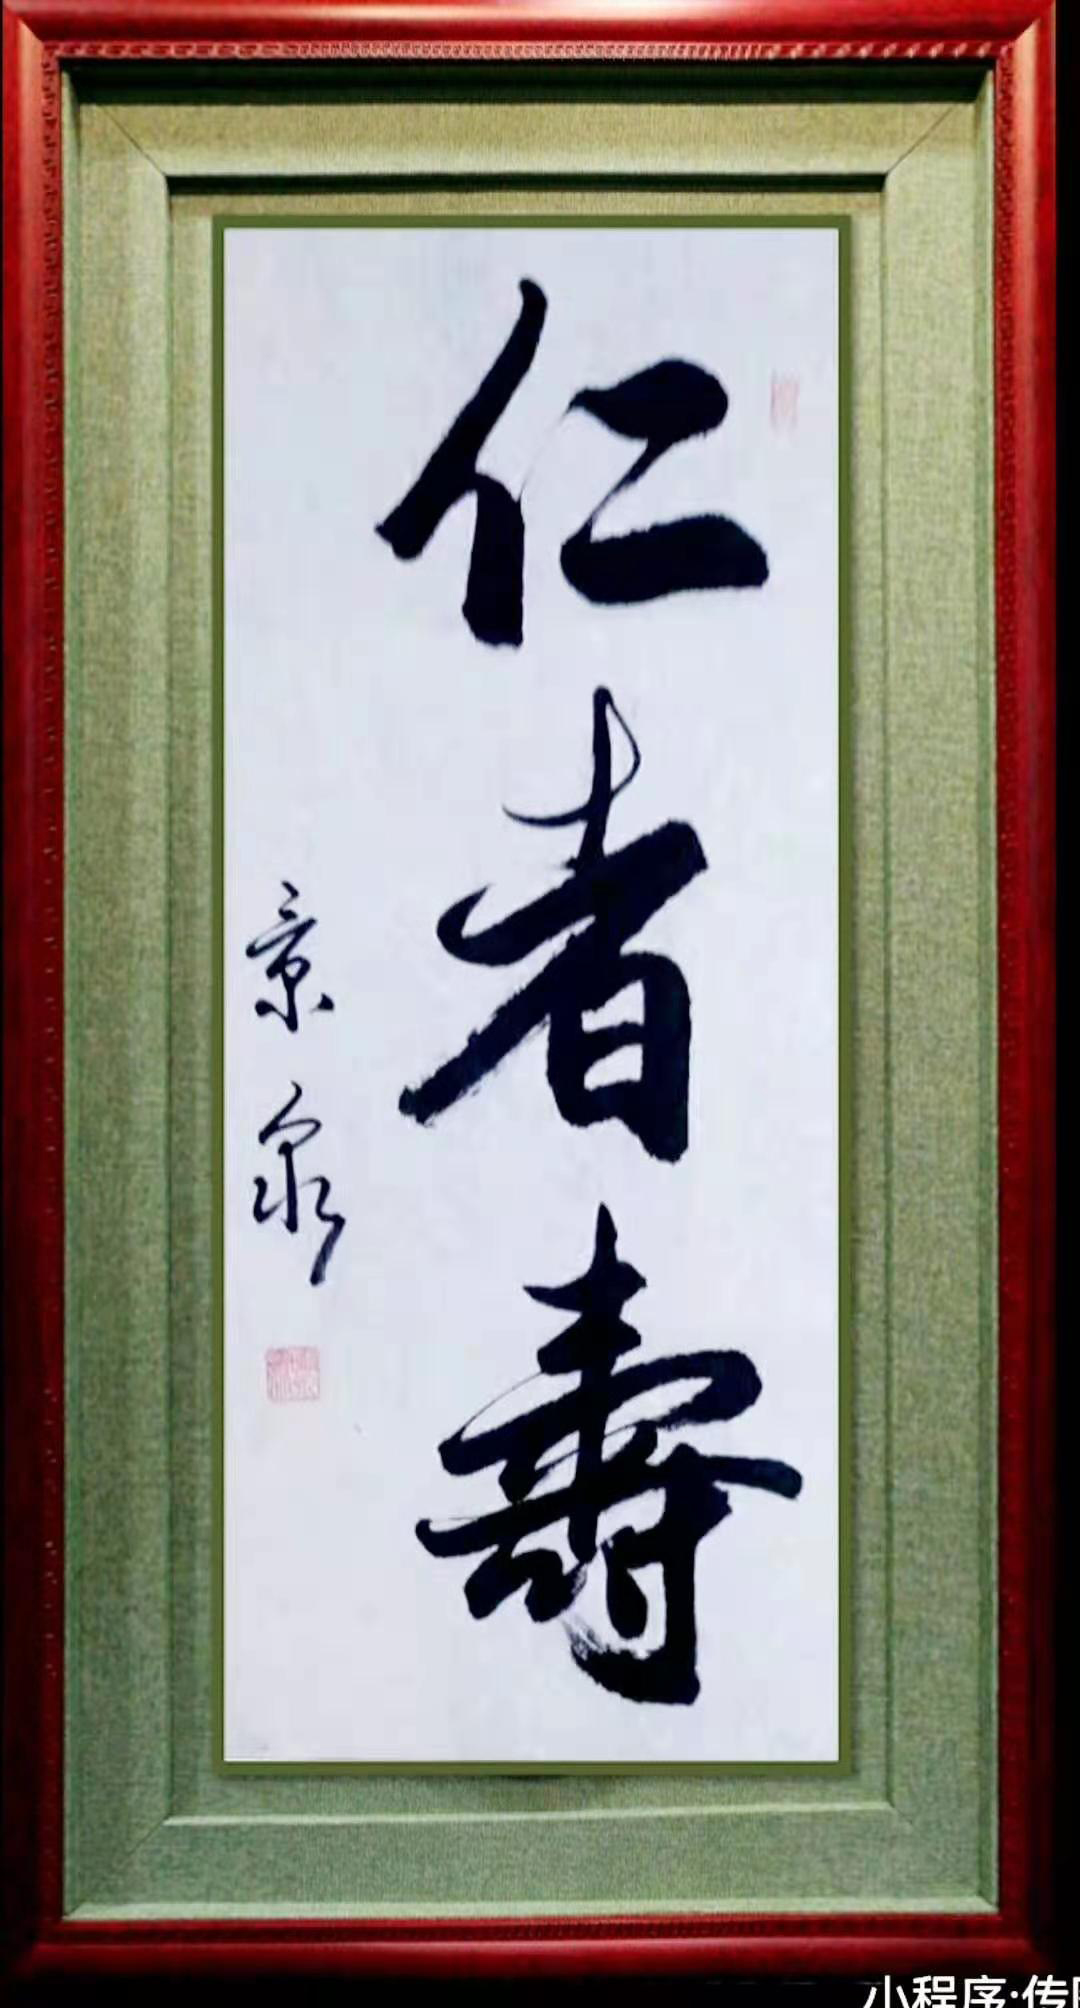 仁者壽
景泉
小程序·传